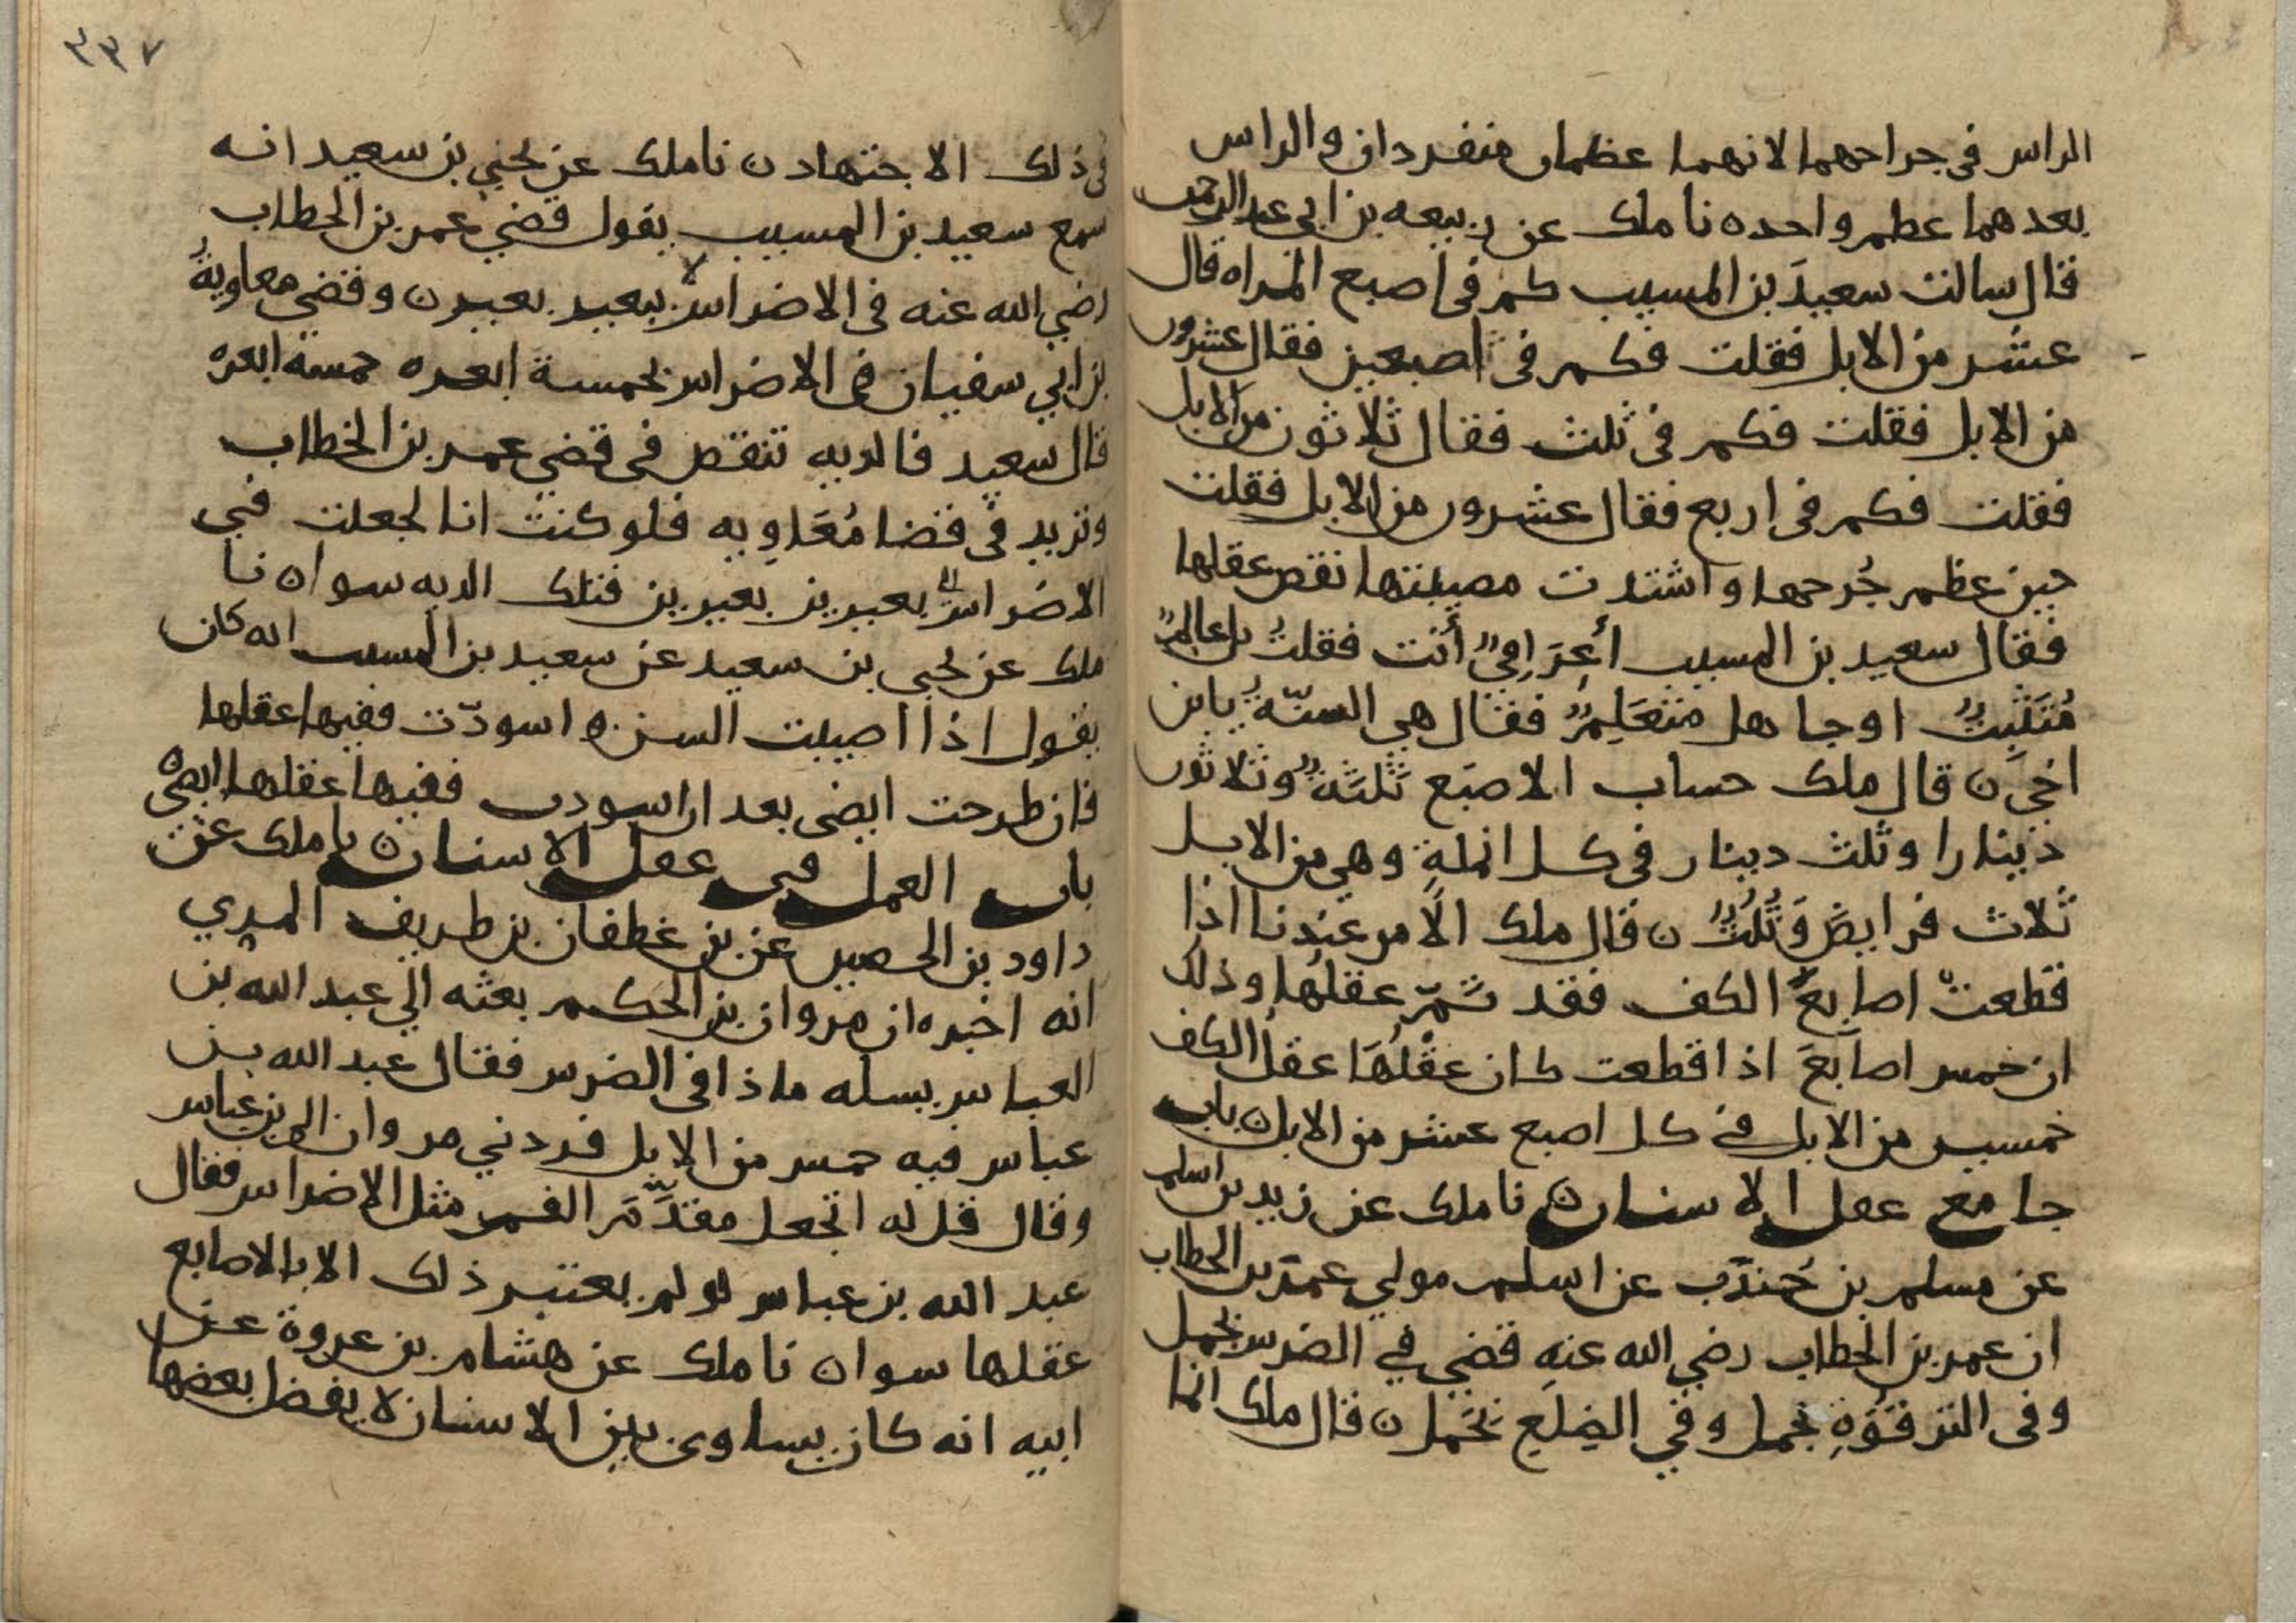 الراس فى جراحهما لانهما عظمان منفردان والراس
بعدهما عظم واحده نا ملك عن ربيعه بن ابي عبد الرحمن
قال سالت سعيدَ بن المسيب كم فى اصبع المراه قال
عشر من الابل فقلت فكم فى اصبعين فقال عشرون
من الابل فقلت فكم فى ثلث فقال ثلاثون من الابل
فقلت فكم فى اربع فقال عشرون من الابل فقلت
حين عظم جُرحها واشتدت مصيبتها نقص عقلها
فقال سعيد بن المسيب أعِرَاقِيٌّ أنت فقلتُ بل عالمٌ
مُتَثَبِتٌ او جاهل متعَلِمٌ فقال هى السنّةُ يا بن
اخى ن قال ملك حساب الاصبَع ثَلثَةٌ وثلاثون
دينارا وثلث دينار فى كل انملةٍ وهى من الابل
ثلاث فرايضَ وَثُلُثٌ ن قال ملك الأمر عندنا اذا
قطعتْ اصابعُ الكف فقد تَمّ عقلُها وذلك
ان خمس اصابعَ اذا قطعت كان عقْلُهَا عقلُ الكف
خمسين من الابل فى كل اصبع عشر من الابل ن باب
جامع عقل الاسنان ن نا ملك عن زيد بن اسلم
عن مسلم بن جُندَب عن اسلم مولى عمر بن الخطاب
ان عمر بن الخطاب رضي الله عنه قضي في الضرس بجمل
وفى الترقُوَةِ بجمل وفي الضِلَعِ بجَمل ن قال ملك انما
فى ذلك الاجتهاد ن نا ملك عن يحيي بن سعيد انه
سمع سعيد بن المسيب يقول قضي عمر بن الخطاب
رضي الله عنه فى الاضراس ببعير بعير ن وقضى معاويةُ
بن ابي سفيان فى الاضراس بخمسة ابعره خمسة ابعره
قال سعيد فالديه تنقص فى قضي عمر بن الخطاب
وتزيد فى قضا مُعَاوِيه فلو كنت انا لجعلت فى
الاضراس بعيرين بعيرين فتلك الديه سوا ن نا
ملك عن يحيى بن سعيد عن سعيد بن المسيب انه كان
يقول اذا اصيبت السن ه اسودّت ففيها عقلها
فان طرحت ايضى بعد ان اسودت ففيها عقلها ايضى
باب العمل فى عقل الاسنان ن نا ملك عن
داود بن الحصين عن بن غطفان بن طريف المري
انه اخبره ان مروان بن الحكم بعثه الي عبد الله بن
العباس يسله ماذا فى الضرس فقال عبد الله بن
عباس فيه خمس من الابل فردني مروان الي بن عباس
وقال قل له اتجعل مقدَّمَ الفم مثل الاضراس فقال
عبد الله بن عباس لو لم يعتبر ذلك الا بالاصابع
عقلها سوا ن نا ملك عن هشام بن عروة عن
ابيه انه كان يساوى بين الاسنان لا يفضل بعضها
٣٣٧